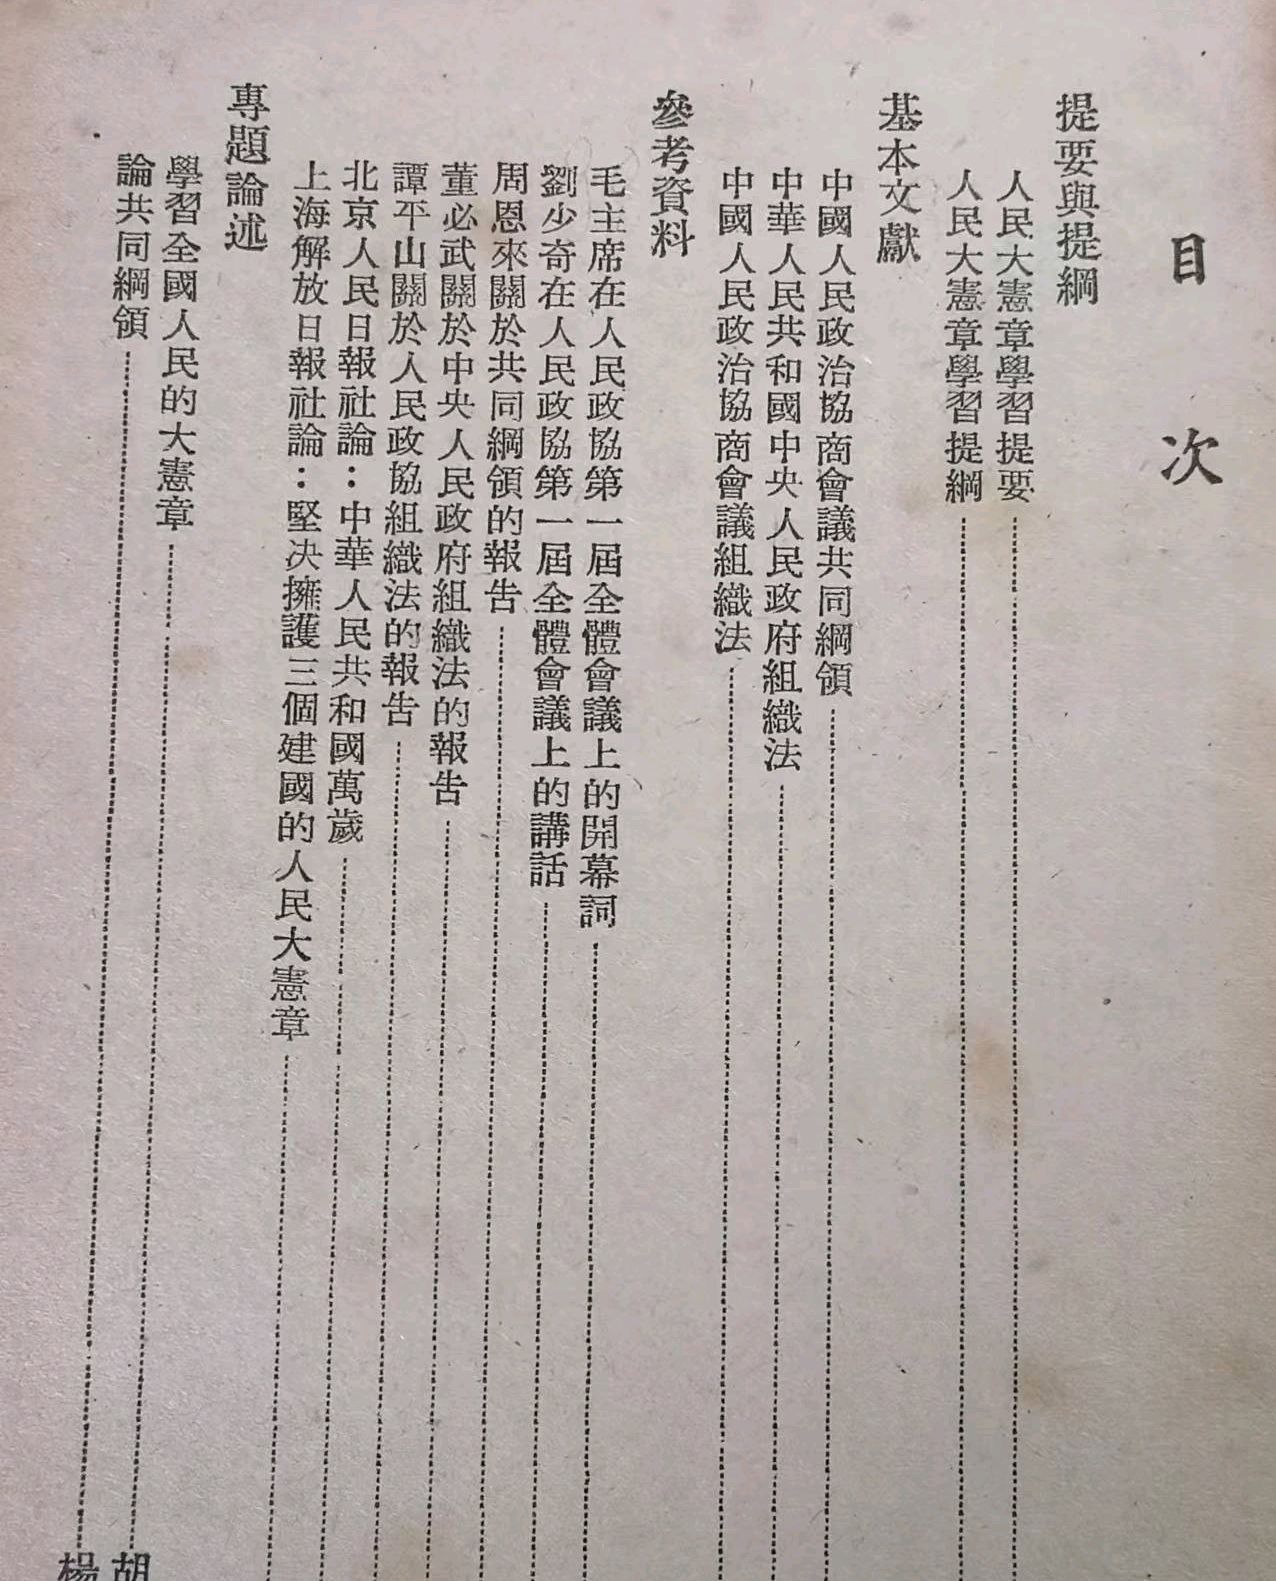 目次
提要與提綱
人民大憲章學習提要
人民大憲章學習提綱
基本文獻
中國人民政治協商會議共同綱領
中華人民共和國中央人民政府組織法
中國人民政治協商會議組織法
參考資料
毛主席在人民政協第一屆全體會議上的開幕詞
劉少奇在人民政協第一屆全體會議上的講話
周恩來關於共同綱領的報告
董必武關於中央人民政府組織法的報告
譚平山關於人民政協組織法的報告
北京人民日報社論：中華人民共和國萬歲
上海解放日報社論：堅决擁護三個建國的人民大憲章
專題論述
學習全國人民的大憲章 胡
論共同綱領 楊